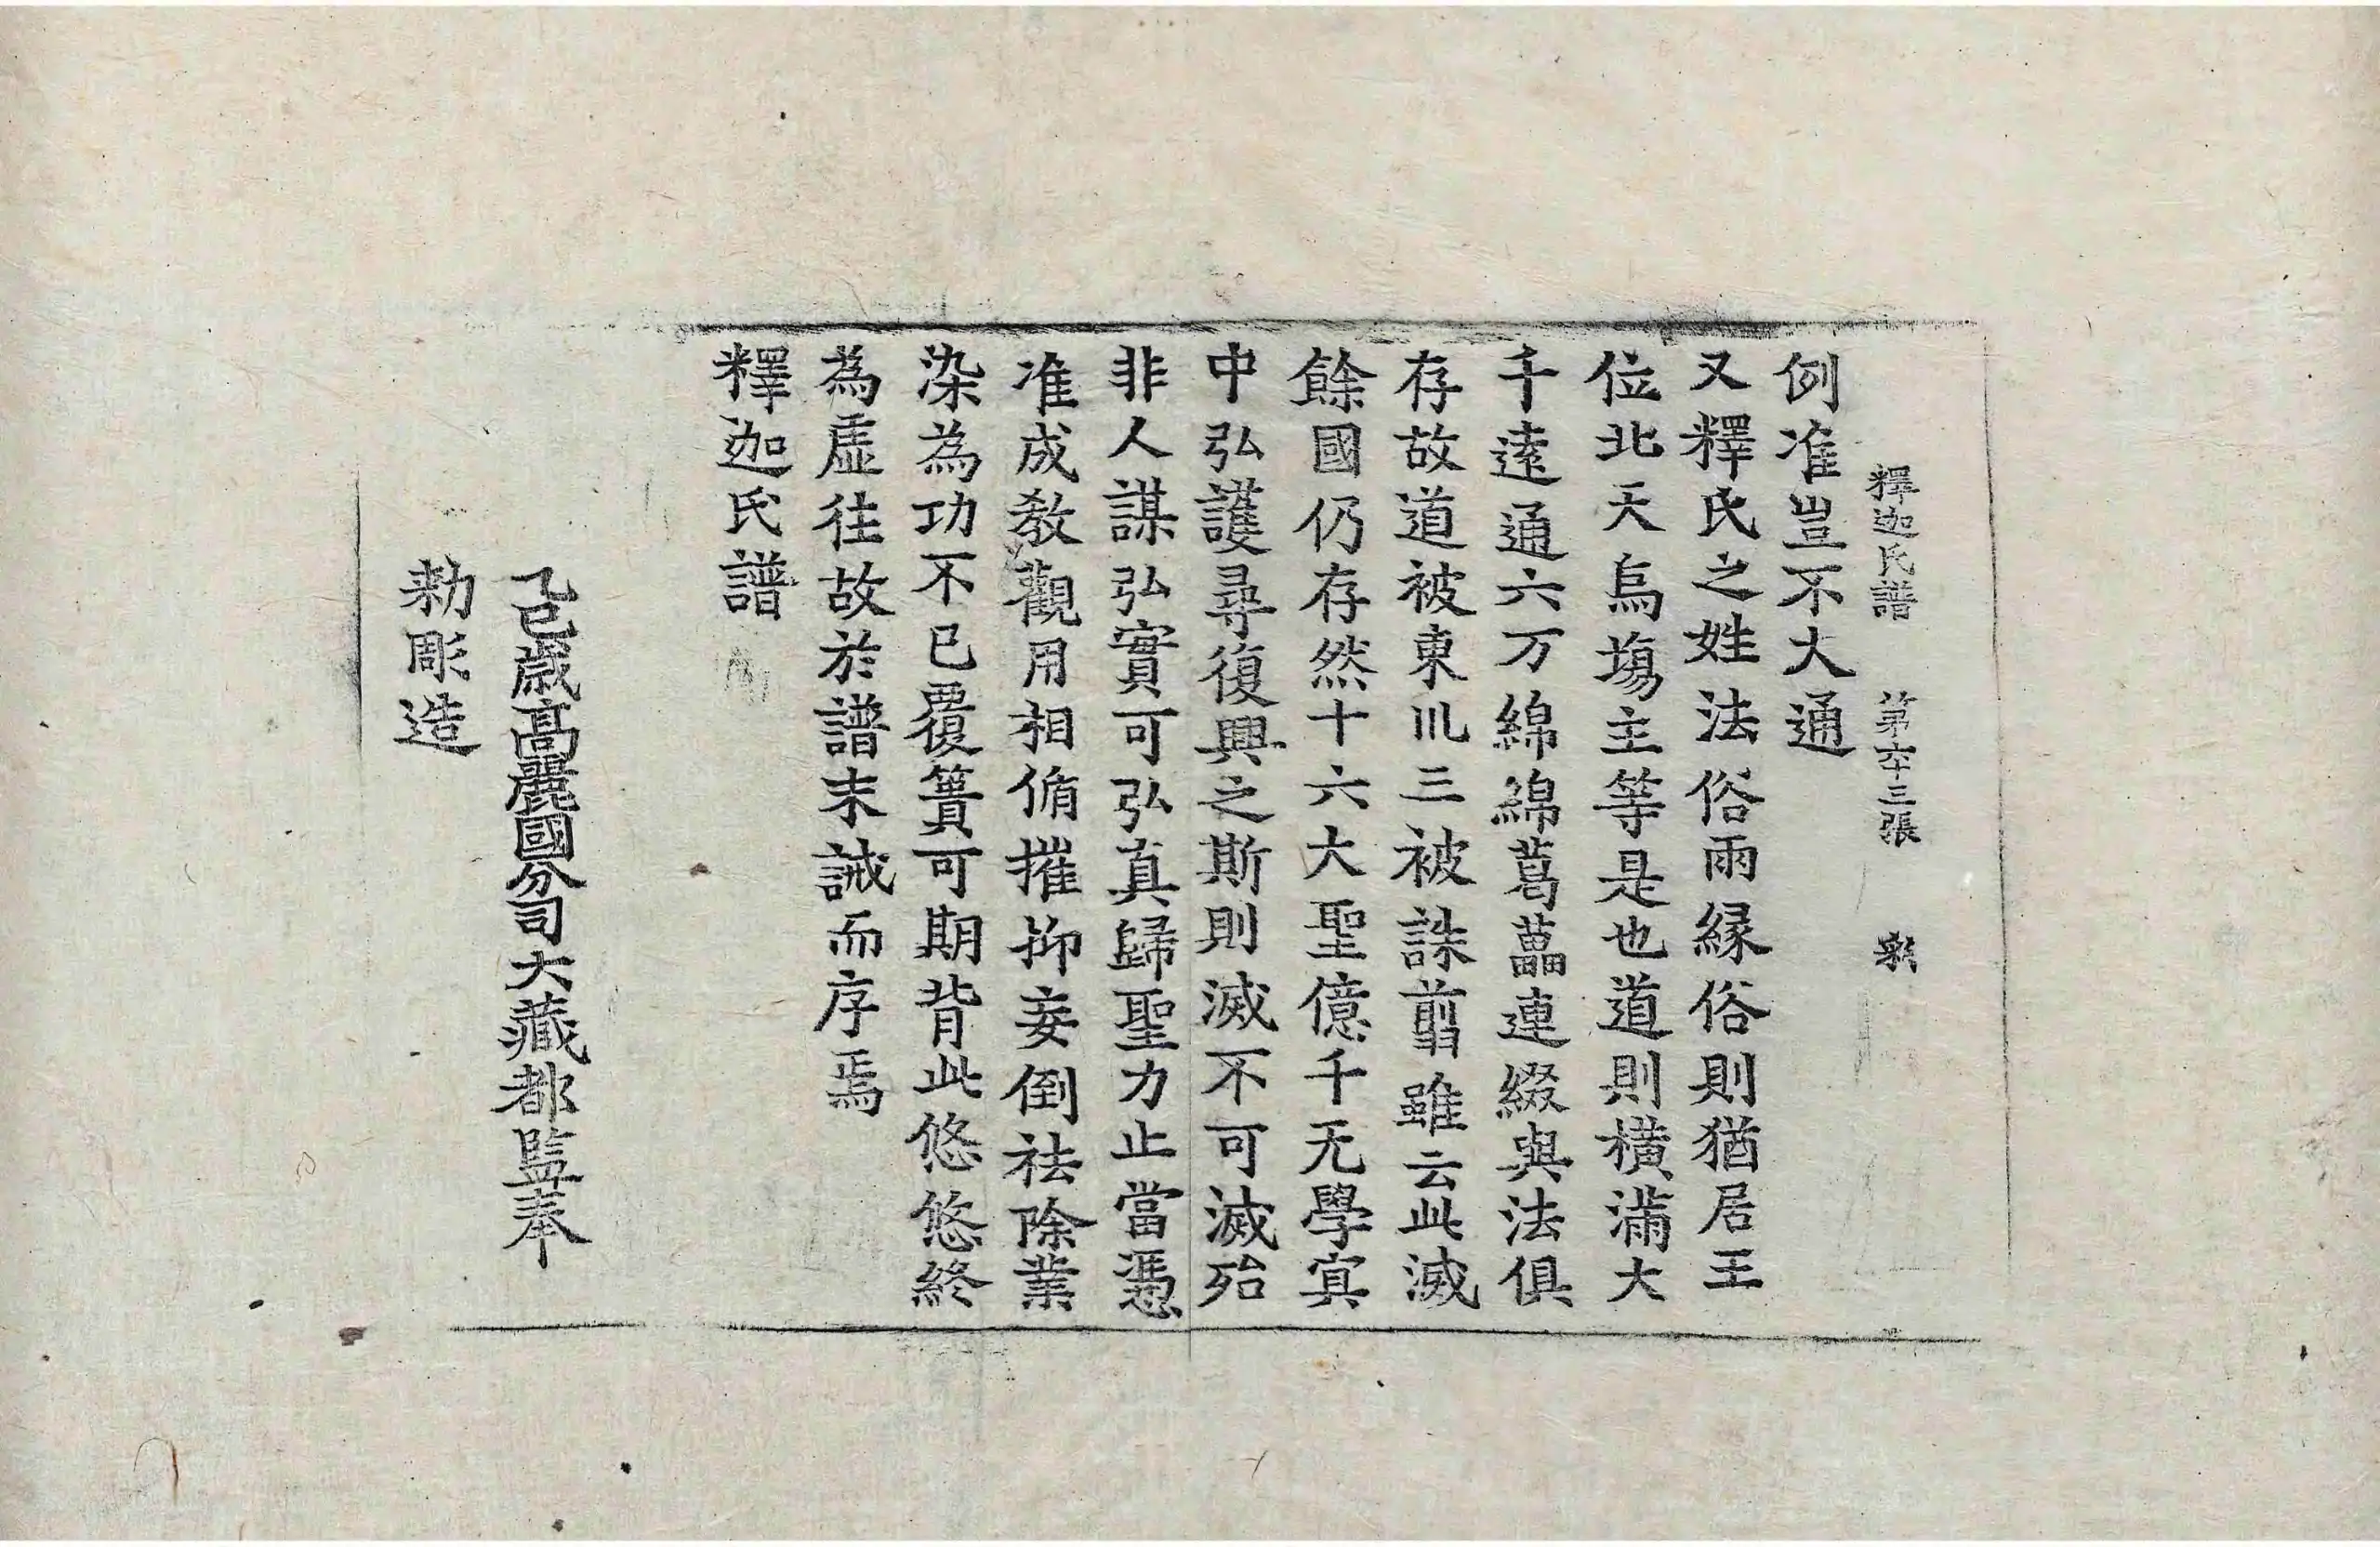 釋迦氏譜 第六十三張 彩
例准豈不大通
又釋氏之姓法俗兩縁俗則猶居王
位北天烏塲主等是也道則横滿大
千逺通六万綿綿葛藟連綴與法俱
存故道被東川三被誅翦雖云此滅
餘國仍存然十六大聖億千无學㝠
中弘護尋復興之斯則滅不可滅殆
非人謀弘實可弘真歸聖力止當憑
准成敎觀用相脩摧抑妄倒祛除業
染為功不已覆簣可期背此悠悠終
為虛往故於譜末誡而序焉
釋迦氏譜
乙巳歳高麗國分司大藏都監奉
勑彫造